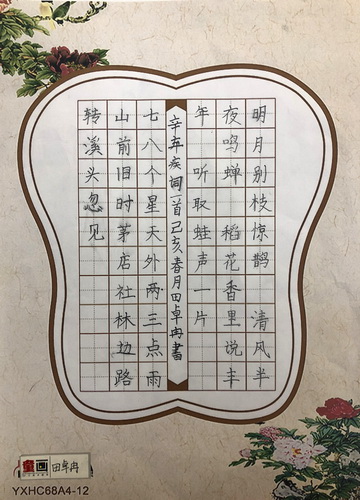 明月别枝惊鹊 清风半
夜鸣蝉 稻花香里说丰
年 听取蛙声一片
辛弃疾词一首己亥春月田卓冉書
七八个星天外两三点雨
山前旧时茅店社林边路
转溪头忽见
童画 田卓冉
YXHC68A4-12